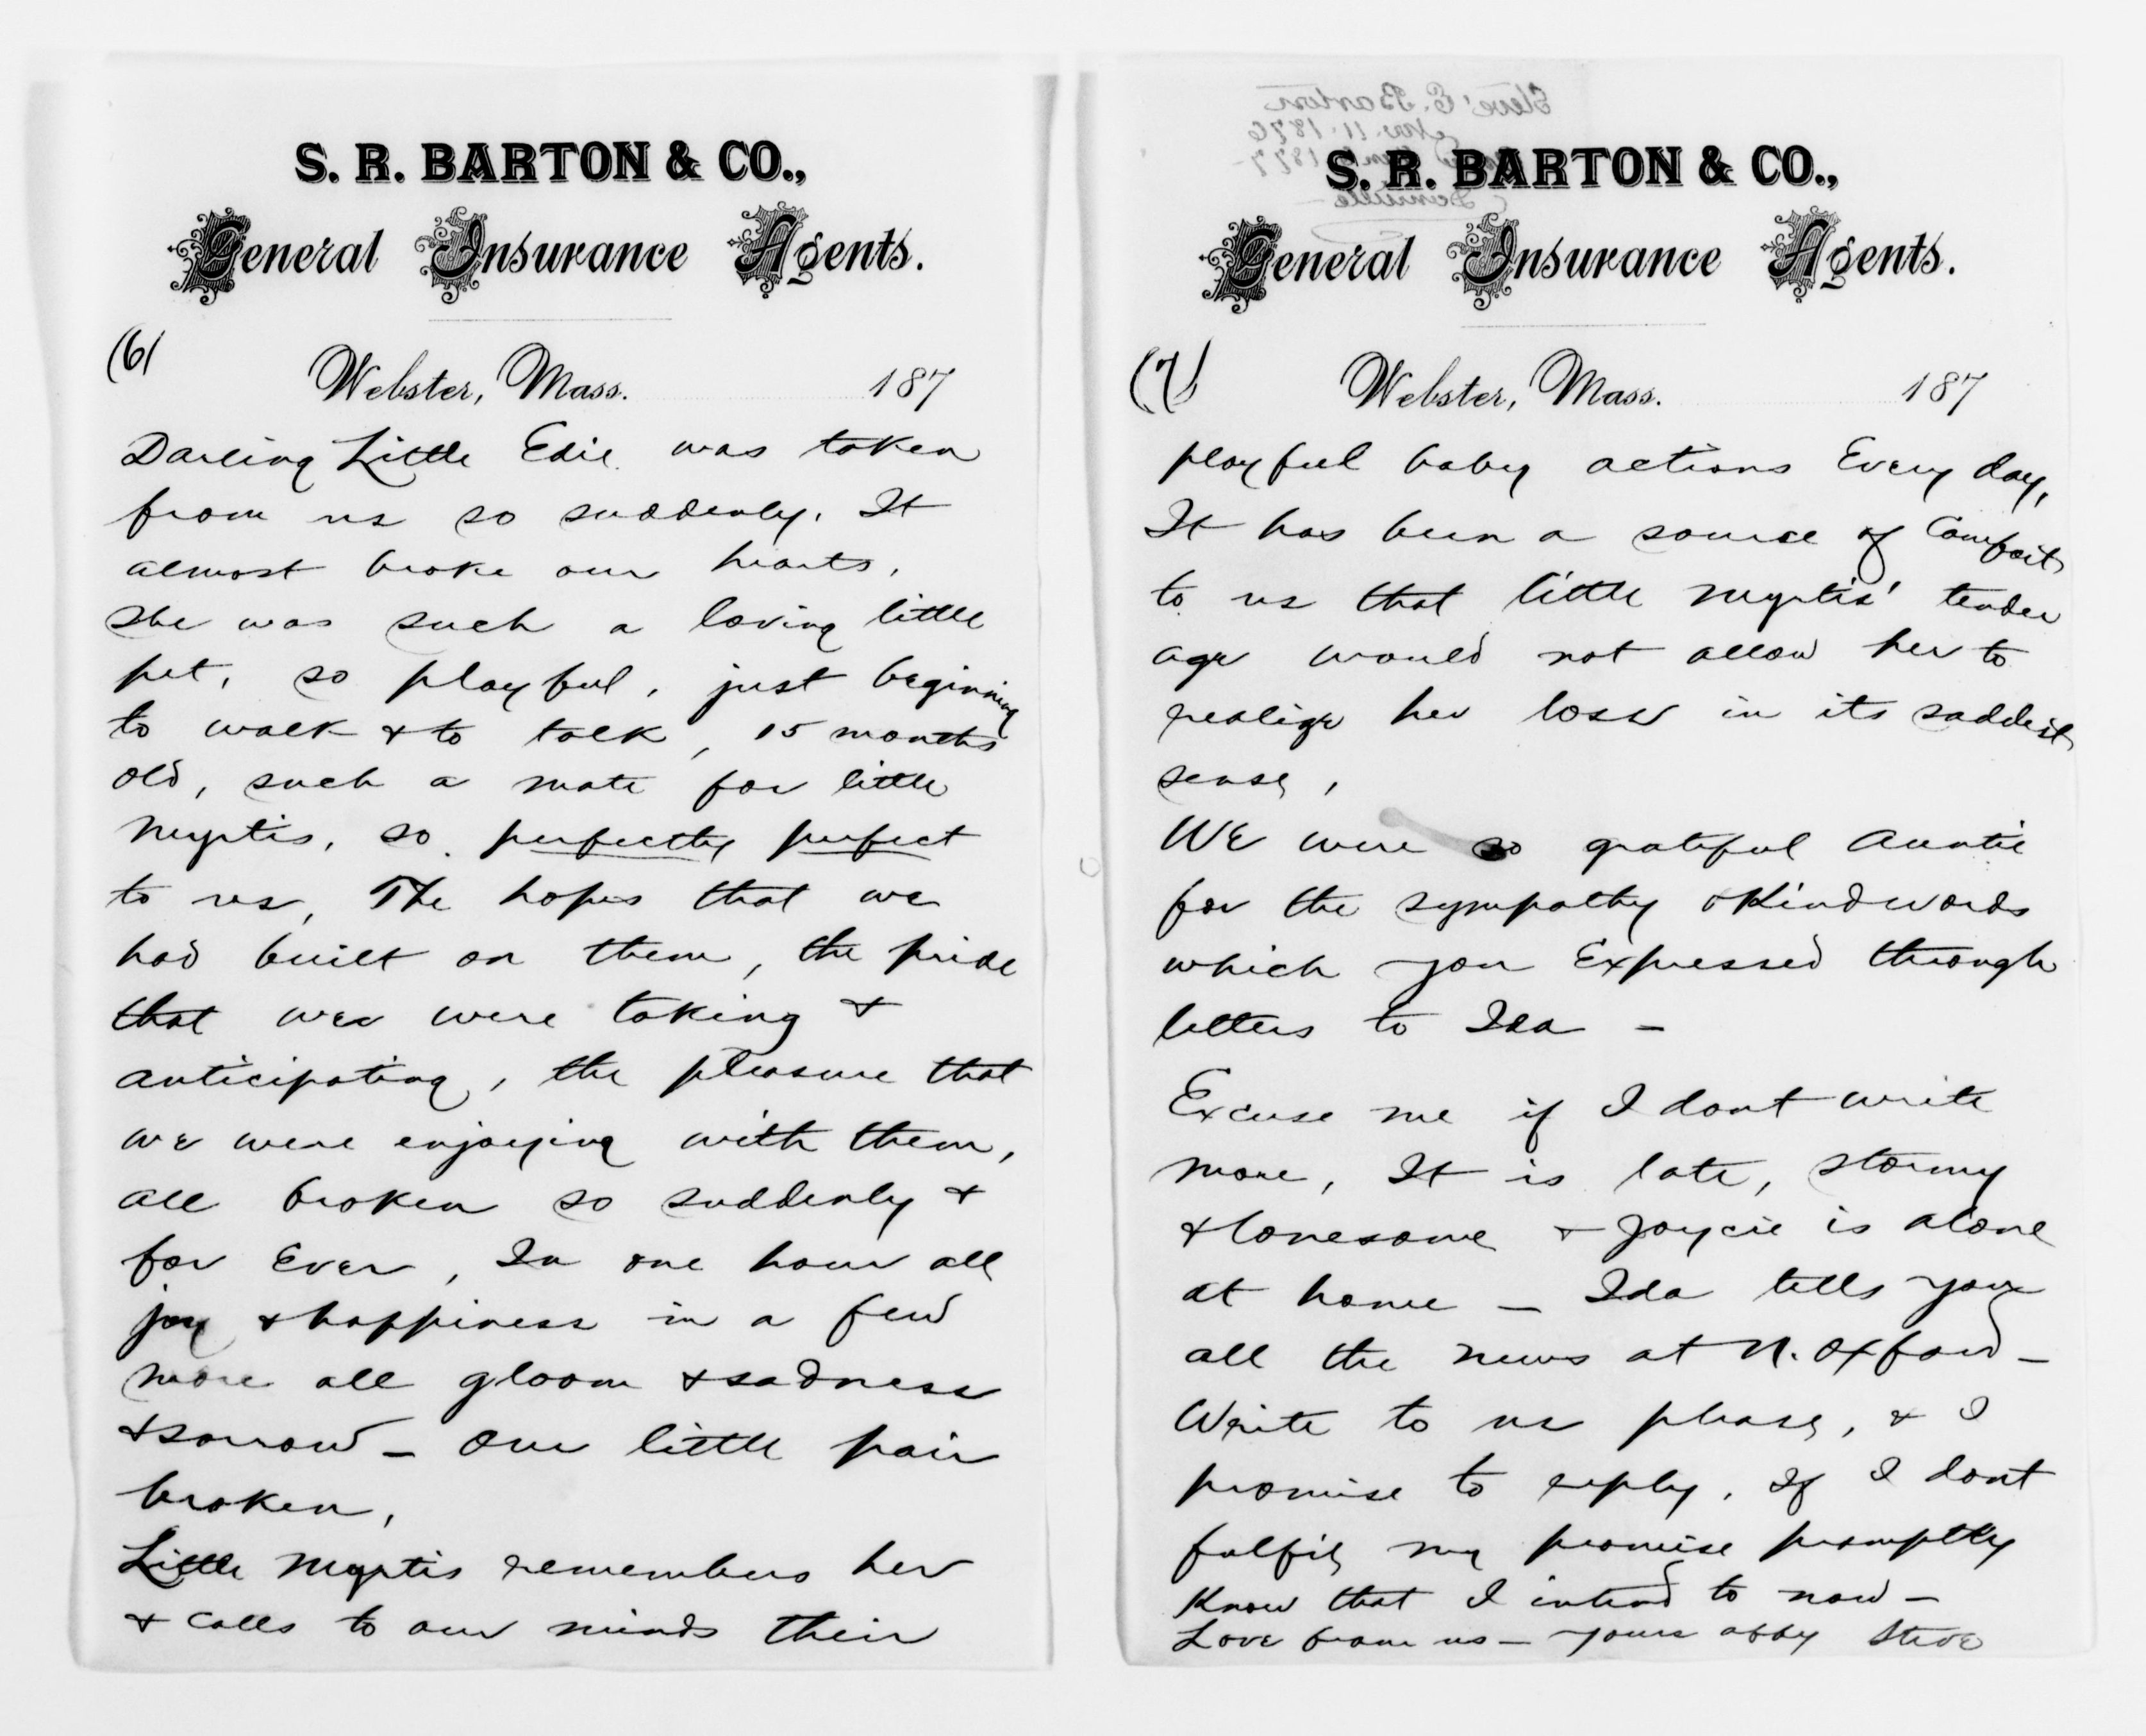 S. R. BARTON & CO.,
General Insurance Agents.
(6)
Webster, Mass. 187
Darling Little Edie was taken
from us so suddenly. It
almost broke our hearts.
She was such a loving little
pet, so playful, just beginning
to walk & to talk, 15 months
old, such a mate for little
Myrtis, so perfectly perfect
to us, The hopes that we
had built on them, the pride
that we were taking &
anticipating, the pleasure that
we were enjoying with them,
all broken so suddenly &
for Ever, In one hour all
joy & happiness in a few
more all gloom & sadness
& sorrow – Our little pair
broken,
Little Myrtis remembers her
& calls to our minds their
Steve' E. Barton
Nov. 11. 1876
1877
Dansville
S. R. BARTON & CO.,
General Insurance Agents.
(7)
Webster, Mass. 187
playful baby actions Every day,
It has been a source of Comfort
to us that little Myrtis' tender
age would not allow her to
realize her loss in its saddest
sense,
We were so grateful Auntie
for the sympathy & Kind words
which you Expressed through
letters to Ida –
Excuse me if I dont write
more, It is late, stormy
& lonesome & Joycie is alone
at home – Ida tells you
all the news at N. Oxford –
Write to us please, & I
promise to reply. If I dont
fulfil my promise promptly
Know that I intend to now –
Love from us – yours affy Steve